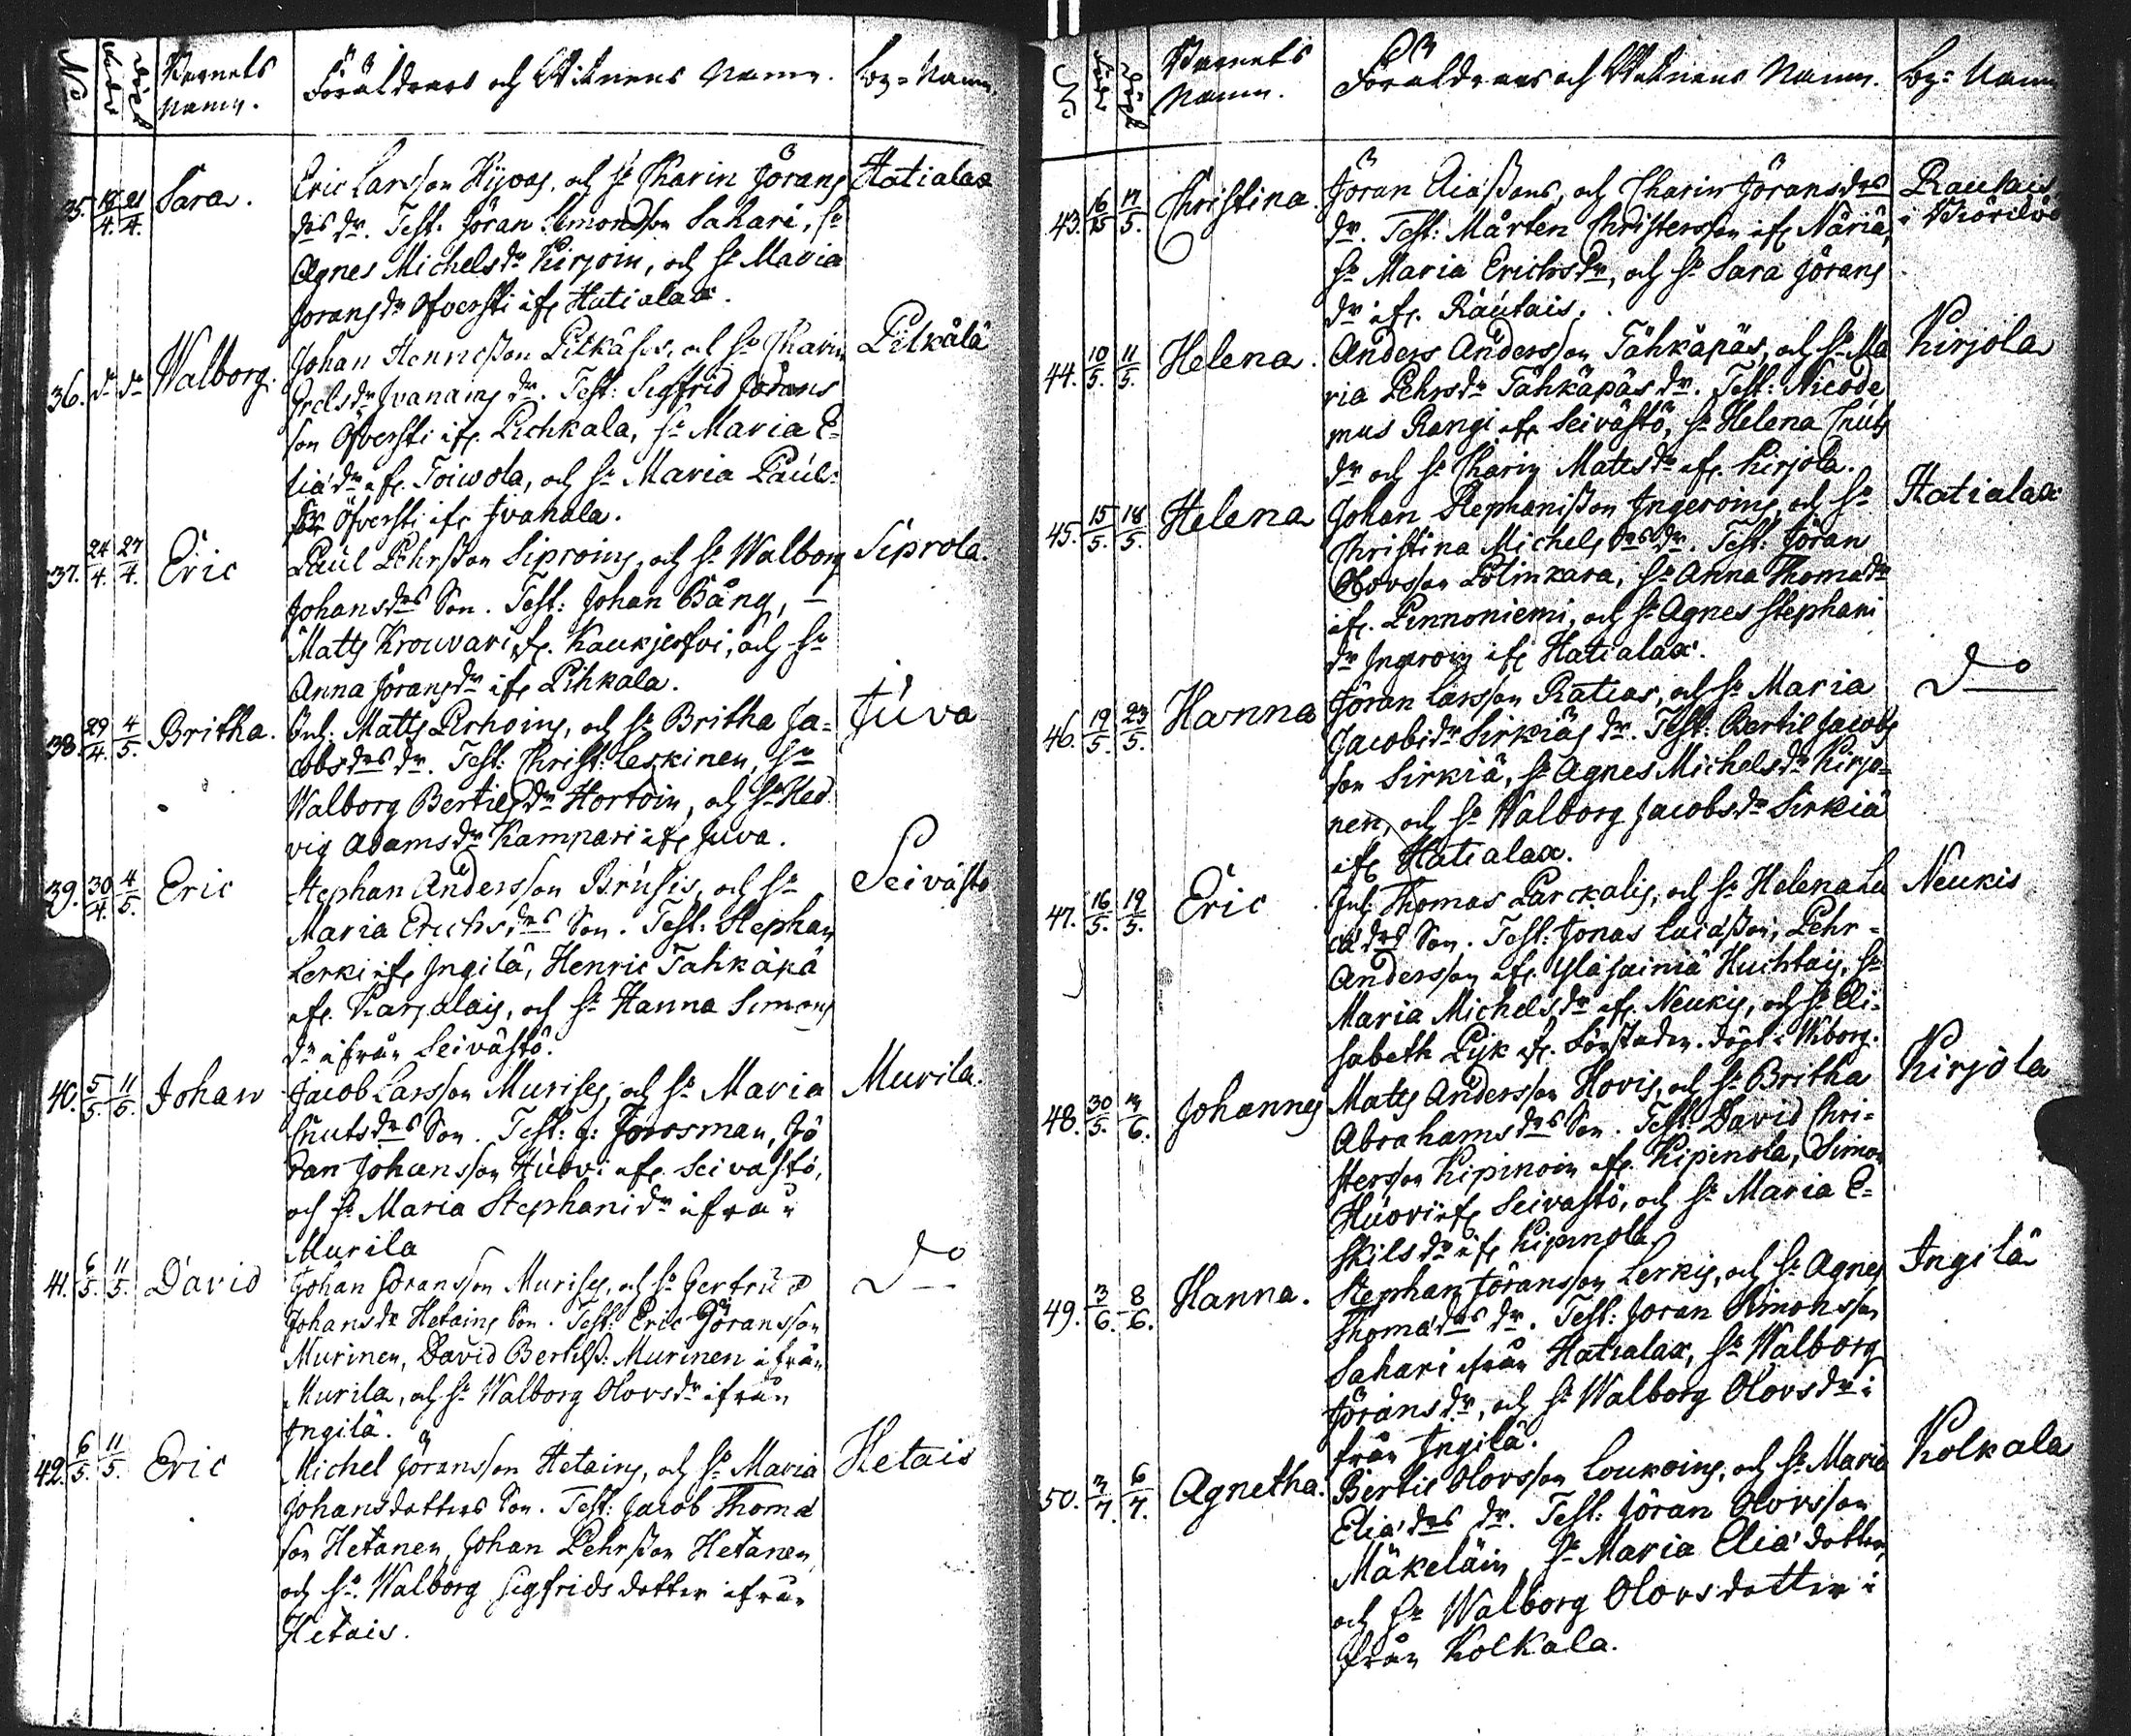 No Född Döpt Barnets Namn. Föräldrars och Wittnens Namn. By-Namn.
35. 18/4. 21/4. Sara. Eric Larsson Hijvas, och h: Charin Jörans Hatialax
drs dr. Test: Jöran Simonsson Sahari, h:
Agnes Michelsdr Kirjoin, och h: Maria
Joransdr Ofversti ifr. Hatialax.
36. do do Walborg. Johan Hennesson Pitkäses, och h: Charin Pitkälä
Grelsdr Ivanains dr. Test: Sigfrid Jörans
son Öfversti ifr. Pichkala, h: Maria E=
liadr ifr. Toiwola, och h: Maria Pauls=
dr Öfversti ifr. Ivahala.
37. 24/4. 27/4. Eric Paul Pehrsson Siproins, och h: Walborg Siprola.
Johansdrs Son. Test: Johan Bång, –
Matts Krouvari ifr. Kaukjerfvi, och h:
Anna Joransdr ifr. Pihkala.
38. 29/4. 4/5. Britha. Inh: Matts Perhoins, och h: Britha Ja= Juva
cobsdrs dr. Test: Christ: Leskinen, h:
Walborg Bertilsdr Hortoin, och h: Hed
vig Adamsdr Kampari ifr. Juva.
39. 30/4. 4/5. Eric Stephan Andersson Brusis, och h: Seivästö
Maria Erichsdrs Son. Test: Stephan
Lerki ifr. Ingilä, Henric Tahkäpä
ifr. Karjalais, och h: Hanna Simons
dr ifrån Seivästö.
40. 5/5. 11/5. Johan Jacob Larsson Murises, och h: Maria Murila.
Cnutsdrs Son. Test: g: Forosman, Jö
ran Johansson Huovi ifr. Seivastö,
och h: Maria Stephanidr ifrån
Murila
41. 6/5. 11/5. David Johan Göransson Murises, och h: Gertrud Do
Johansdr Hetains Son. Test: Eric Göransson
Murinen, David Bertilss: Murinen ifrån
Murila, och h: Walborg Olovsdr ifrån
Ingilä.
42. 6/5. 11/5. Eric Michel Joransson Hetains, och h: Maria Hetais
Johansdotters Son. Test: Jacob Thoma
son Hetanen, Johan Pehrsson Hetanen,
och h: Walborg Sigfridsdotter ifrån
Hetais.
No Född Döpt Barnets Namn. Föräldrars och Wittnens Namn. By-Namn
43. 16/5 17/5. Christina. Jöran Eliassons, och Charin Jöransdrs Rautais
dr. Test: Mårten Christersson ifr. Näriä, i Kiörilöö
h: Maria Erichsdr, och h: Sara Jörans
dr ifr. Rautais.
44. 10/5. 11/5. Helena. Anders Andersson Tähkäpäs, och h: Ma Kirjola
ria Pehrsdr Tähkäpäs dr. Test: Nicode
mus Rangi ifr. Seivästö, h: Helena Cnuts
dr och h: Charin Matesdr ifr. Kirjola.
45. 15/5. 18/5. Helena Johan Stephanisson Ingeroins, och h: Hatialax
Christina Michelsdrs dr. Test: Jöran
Olovsson Polinkara, h: Anna Thomadr
ifr. Pennoniemi, och h: Agnes Stephani
dr Ingeroin ifr. Hatialax.
46. 19/5. 23/5. Hanna Jöran Larsson Ratias, och h: Maria Do
Jacobsdr Sirkiäs dr. Test: Bertil Jacobs
son Sirkiä, h: Agnes Michelsdr Kirjo=
nen, och h: Walborg Jacobsdr Sirkiä
ifr. Hatialax.
47. 16/5. 19/5. Eric Inh: Thomas Parckalis, och h: Helena Lu Neukis
cadrs Son. Test: Jonas Lucasson, Pehr=
Andersson ifr. Yläsainiä Huchtais, h:
Maria Michelsdr ifr. Neukis, och h: Eli=
sabeth Pijk ifr. Förstaden. döpt i Wiborg.
48. 30/5. 3/6. Johannes Matts Andersson Hovis, och h: Britha Kirjola
Abrahamsdrs Son. Test: David Chri=
stersson Kipinoin ifr. Kipinola, Simon
Huovi ifr. Seivastö, och h: Maria E=
skilsdr ifr. Kipinola
49. 3/6. 8/6. Hanna. Stephan Jöransson Lerkis, och h: Agnes Ingilä
Thomadrs dr. Test: Joran Simonsson
Sahari ifrån Hatialax, h: Walborg
Jöransdr, och h: Walborg Olovsdr i
från Ingilä.
50. 3/7. 6/7. Agnetha. Bertil Olovsson Loukoins, och h: Maria Kolkala
Eliadrs dr. Test: Jöran Olovsson
Mäkeläin, h: Maria Elia dotter,
och h: Walborg Olovsdotter i
från Kolkala.